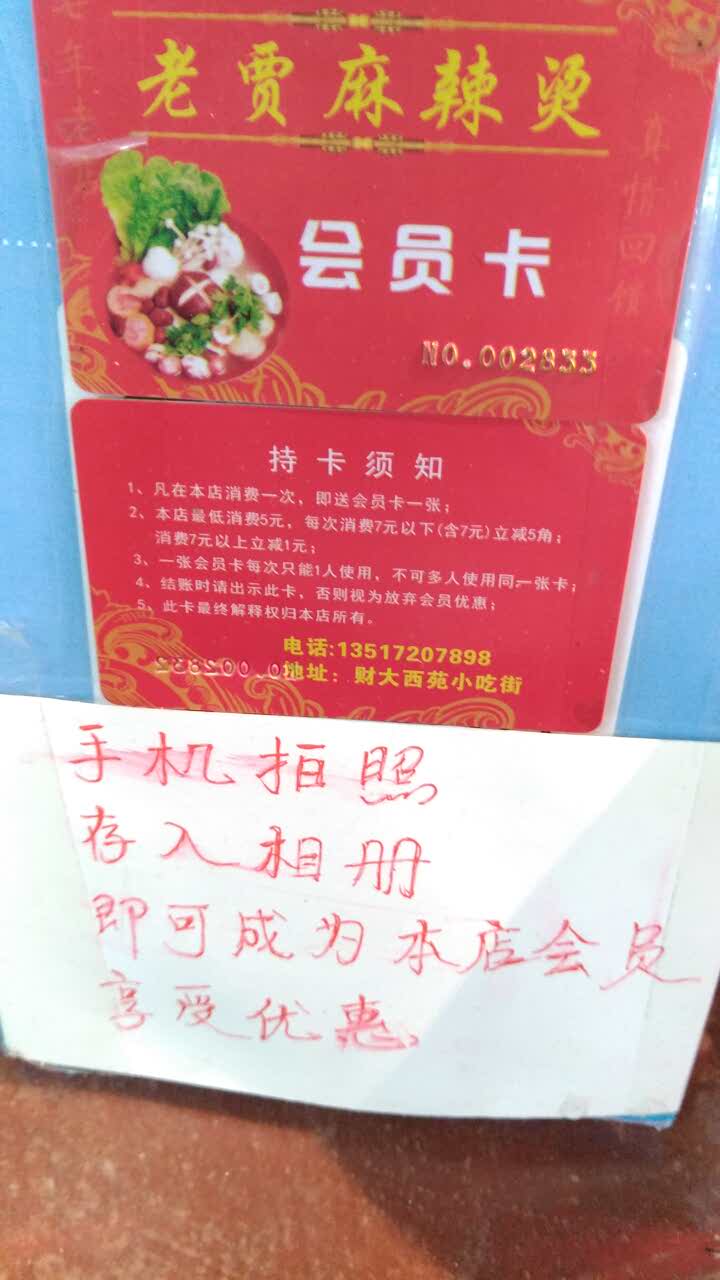 老贾麻辣烫
真情回馈
会员卡
NO.002833
持卡须知
1、凡在本店消费一次，即送会员卡一张；
2、本店最低消费5元，每次消费7元以下(含7元)立减5角；
消费7元以上立减1元；
3、一张会员卡每次只能1人使用，不可多人使用同一张卡；
4、结账时请出示此卡，否则视为放弃会员优惠；
5、此卡最终解释权归本店所有。
电话:13517207898
地址：财大西苑小吃街
手机拍照
存入相册
即可成为本店会员
享受优惠